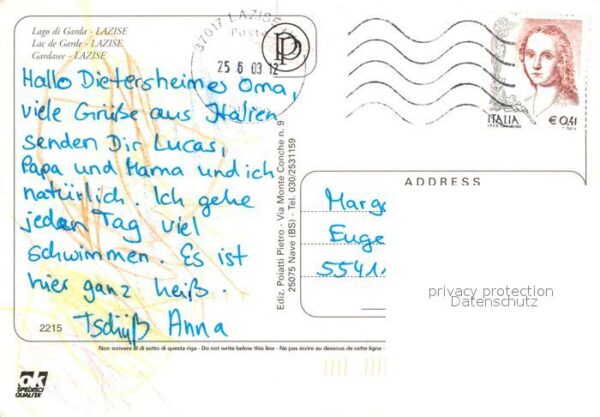 Lago di Garda - LAZISE
Lac de Garde - LAZISE
Gardasee - LAZISE
37017 LAZISE
Poste
25 6 03 12
PD
ITALIA
€ 0,41
Hallo Dietersheimer Oma,
viele Grüße aus Italien
senden Dir Lucas,
Papa und Mama und ich
natürlich. Ich gehe
jeden Tag viel
schwimmen. Es ist
hier ganz heiß.
Tschüß Anna
2215
Ediz. Poiatti Pietro - Via Monte Conche n. 9
25075 Nave (BS) - Tel. 030/2531159
ADDRESS
Marga
Euge
55411
privacy protection
Datenschutz
Non scrivere al di sotto di questa riga - Do not write below this line - Ne pas écrire au dessous de cette ligne
ok
SPEDISCI
QUALITA'